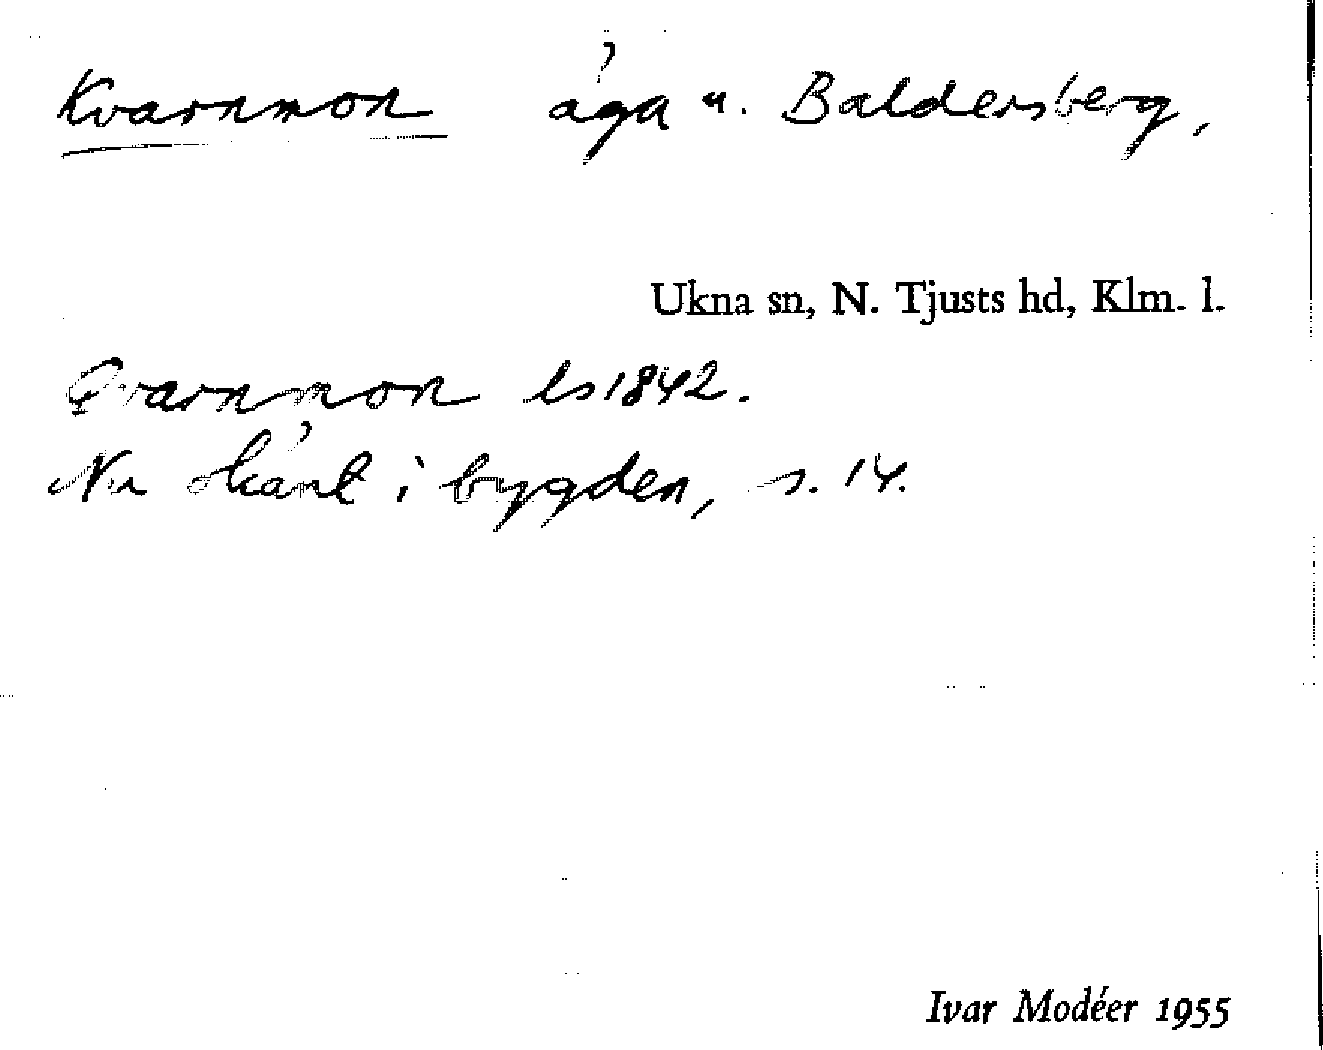 Kvarnmon åga u. Baldersberg,
Ukna sn, N. Tjusts hd, Klm. l.
Qvarnmon ls 1842.
Nu okänt i bygden, s. 14.
Ivar Modéer 1955